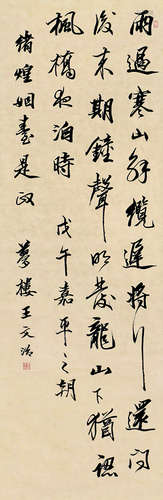 雨過寒山解纜遲將行還問
後來期鐘聲明發龍山下猶認
楓橋夜泊時 戊午嘉平之
緒煌姻臺是政 夢樓王文治